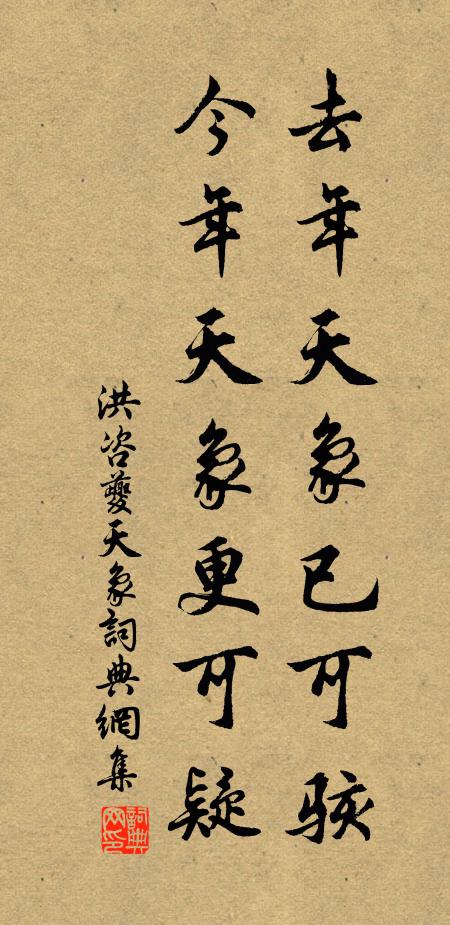 去年天象已可駭
今年天象更可疑
洪咨夔天象詞典網集
詞典网印